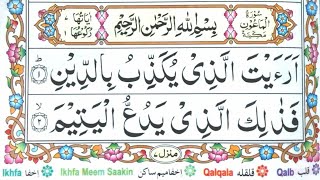 سُورَةُ الْمَاعُونِ مَكِّيَّةٌ
بِسْمِ اللّٰهِ الرَّحْمٰنِ الرَّحِيْمِ
اٰيَاتُهَا ٧ رُكُوْعُهَا ١
اَرَءَيْتَ الَّذِىْ يُكَذِّبُ بِالدِّيْنِ ۝١
فَذٰلِكَ الَّذِىْ يَدُعُّ الْيَتِيْمَ ۝٢
منزل ٧
Ikhfa اخفا Ikhfa Meem Saakin اخفا میم ساکن Qalqala قلقله Qalb قلب